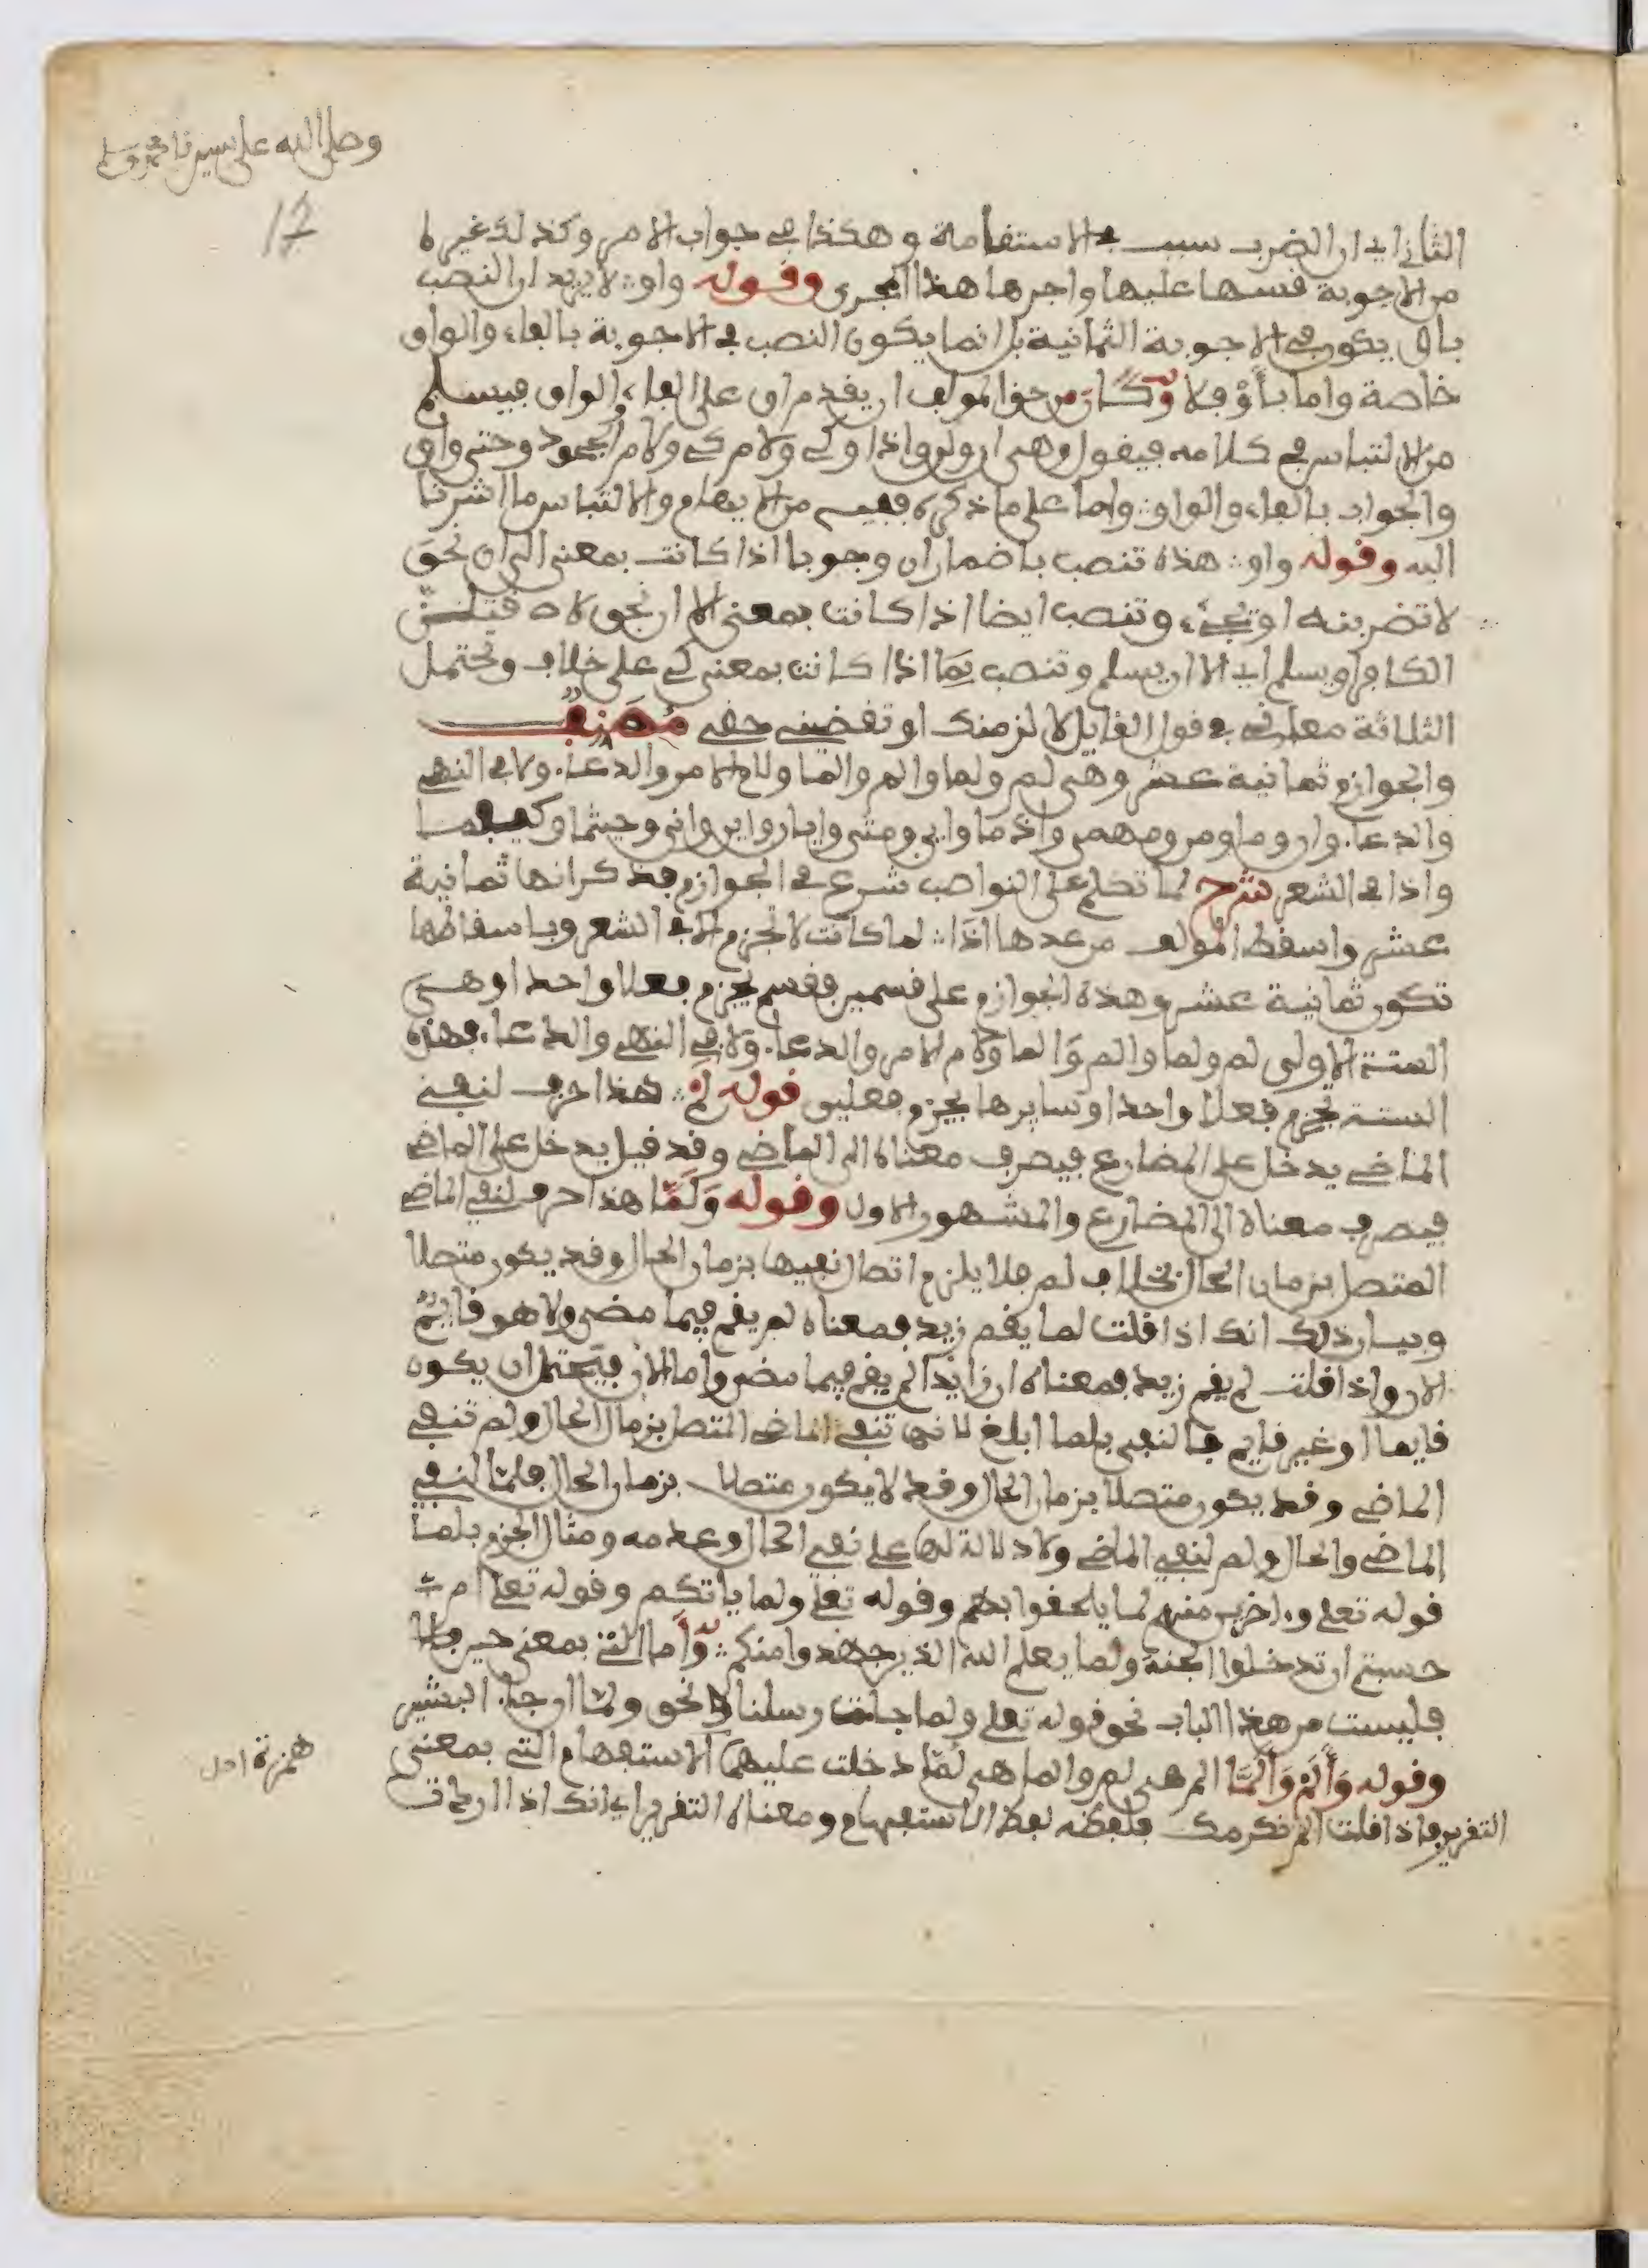 وصلى الله على سيدنا محمد وسلم
17
الثاني اي ان الضرب سبب في الاستقامة وهكذا في جواب الامر وكذلك غيره
من الاجوبة فقسها عليها واجرها هذا المجرى وقوله واو لا يريد ان النصب
باو يكون في الاجوبة الثمانية بل انما يكون النصب في الاجوبة بالفاء والواو
خاصة واما باو فلا وكان من حق المولف ان يقدم او على الفاء والواو فيسلم
من الالتباس في كلامه فيقول وهي ان ولن واذا وكي ولام كي ولام الجحود وحتى واو
والجواب بالفاء والواو واما على ما ذكره ففيه من الايهام والالتباس ما اشرنا
اليه وقوله واو هذه تنصب باضمار ان وجوبا اذا كانت بمعنى الى ان نحو
لاتضربنه او تجيء وتنصب ايضا اذا كانت بمعنى الا ان نحو لاقتلن
الكافر او يسلم اي الا ان يسلم وتنصب بها اذا كانت بمعنى كي على خلاف وتحتمل
الثلاثة معان في قول القايل لالزمنك او تقضيني حقي مصنف
والجوازم ثمانية عشر وهي لم ولما والم والما ولام الامر والدعاء ولا في النهي
والدعاء وان وما ومن ومهمى واذ ما واي ومتى وايان واين وانى وحيثما وكيفما
واذا في الشعر شرح لما تكلم على النواصب شرع في الجوازم فذكر انها ثمانية
عشر واسقط المولف من عددها اذا لما كانت لا تجزم الا في الشعر وباسقاطها
تكون ثمانية عشر وهذه الجوازم على قسمين فقسم يجزم فعلا واحدا وهي
الستة الاولى لم ولما والم والما ولام الامر والدعاء ولا في النهي والدعاء فهذه
الستة تجزم فعلا واحدا وسايرها يجزم فعلين قوله لم هذا حرف لنفي
الماضي يدخل على المضارع فيصرف معناه الى الماضي وقد قيل يدخل على الماضي
فيصرف معناه الى المضارع والمشهور الاول وقوله ولما هذا حرف لنفي الماضي
المتصل بزمان الحال بخلاف لم فلا يلزم اتصال نفيها بزمان الحال وقد يكون متصلا
وبيان ذلك انك اذا قلت لما يقم زيد فمعناه لم يقم فيما مضى ولا هو قايم
الان واذا قلت لم يقم زيد فمعناه ان زايدا لم يقم فيما مضى واما الان فيحتمل ان يكون
قايما او غير قايم فالنفي بلما ابلغ لانها تنفي الماضي المتصل بزمان الحال ولم تنفي
الماضي وقد يكون متصلا بزمان الحال وقد لا يكون متصلا بزمان الحال فلما لنفي
الماضي والحال ولم لنفي الماضي ولا دلالة لها على نفي الحال وعدمه ومثال الجزم بلما
قوله تعلى واخرين منهم لما يلحقوا بهم وقوله تعلى ولما ياتكم وقوله تعلى ام
حسبتم ان تدخلوا الجنة ولما يعلم الله الذين جهدوا منكم واما التي بمعنى حين
فليست من هذا الباب نحو قوله تعلى ولما جات رسلنا ونحو ولما ان جاء البشير
وقوله والم والما الم هي لم والما هي لما دخلت عليهما الاستفهام التي بمعنى
همزة اصل
التقرير فاذا قلت الم نكرمك فلفظه لفظ الاستفهام ومعناه التقرير اي انك اذا اردت